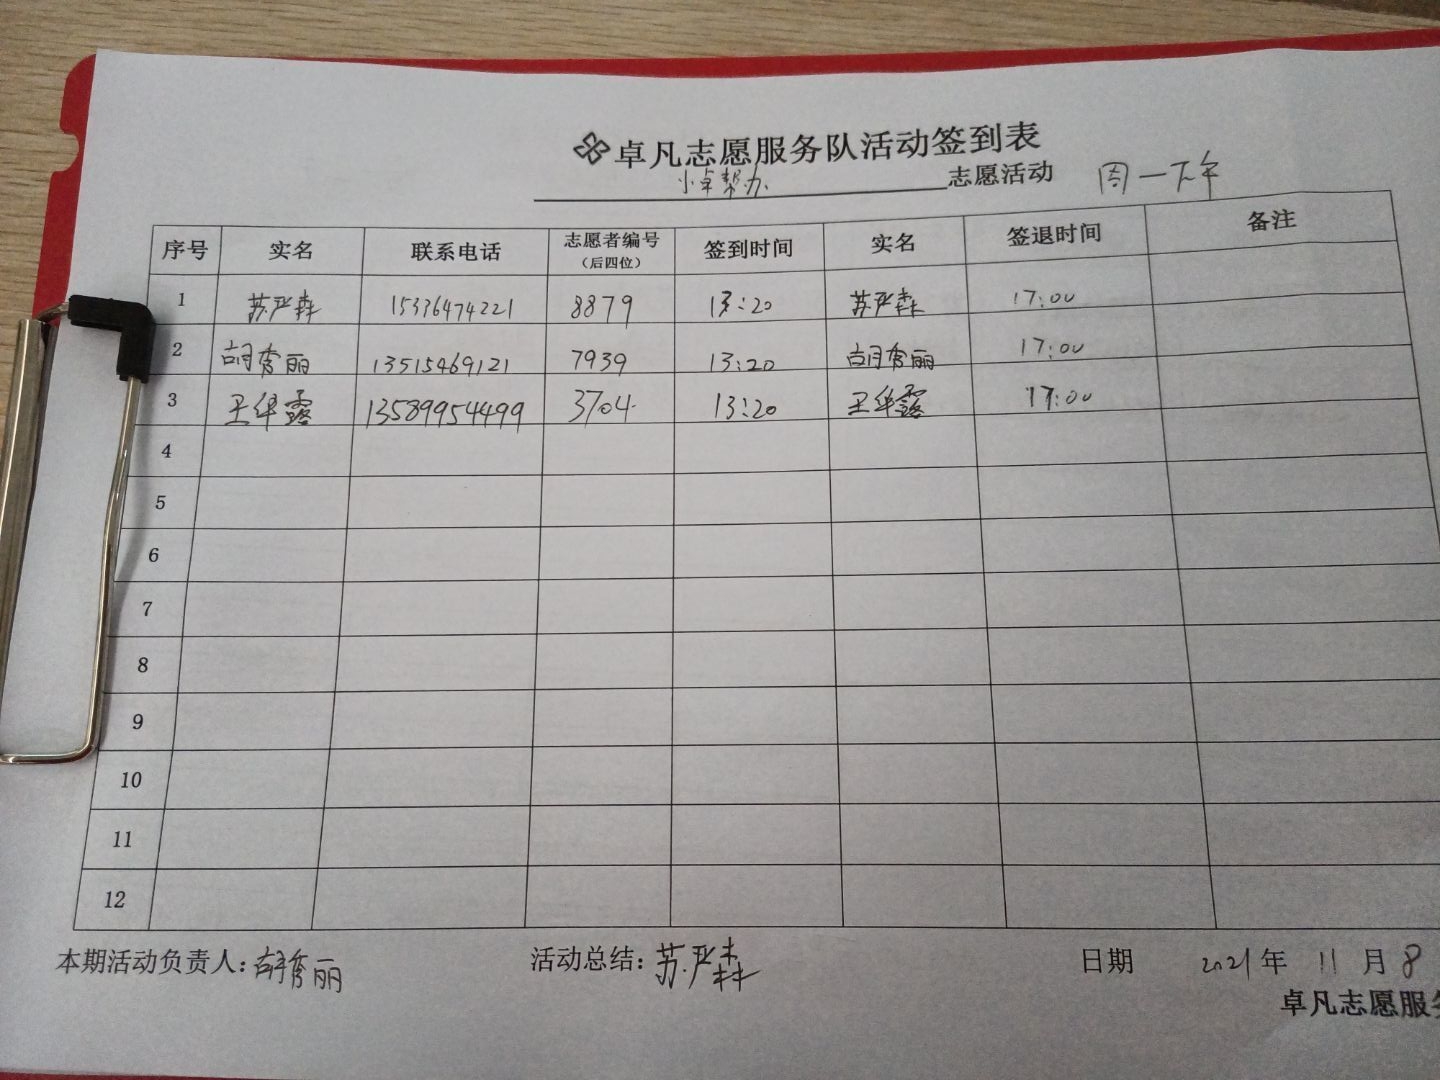 卓凡志愿服务队活动签到表
小卓帮办 志愿活动 周一下午
序号 实名 联系电话 志愿者编号（后四位） 签到时间 实名 签退时间 备注
1 苏严森 15376474221 8879 13:20 苏严森 17:00
2 胡秀丽 13515469121 7939 13:20 胡秀丽 17:00
3 王华露 13589954499 3704 13:20 王华露 17:00
4
5
6
7
8
9
10
11
12
本期活动负责人：胡秀丽 活动总结：苏严森 日期 2021年 11月 8
卓凡志愿服